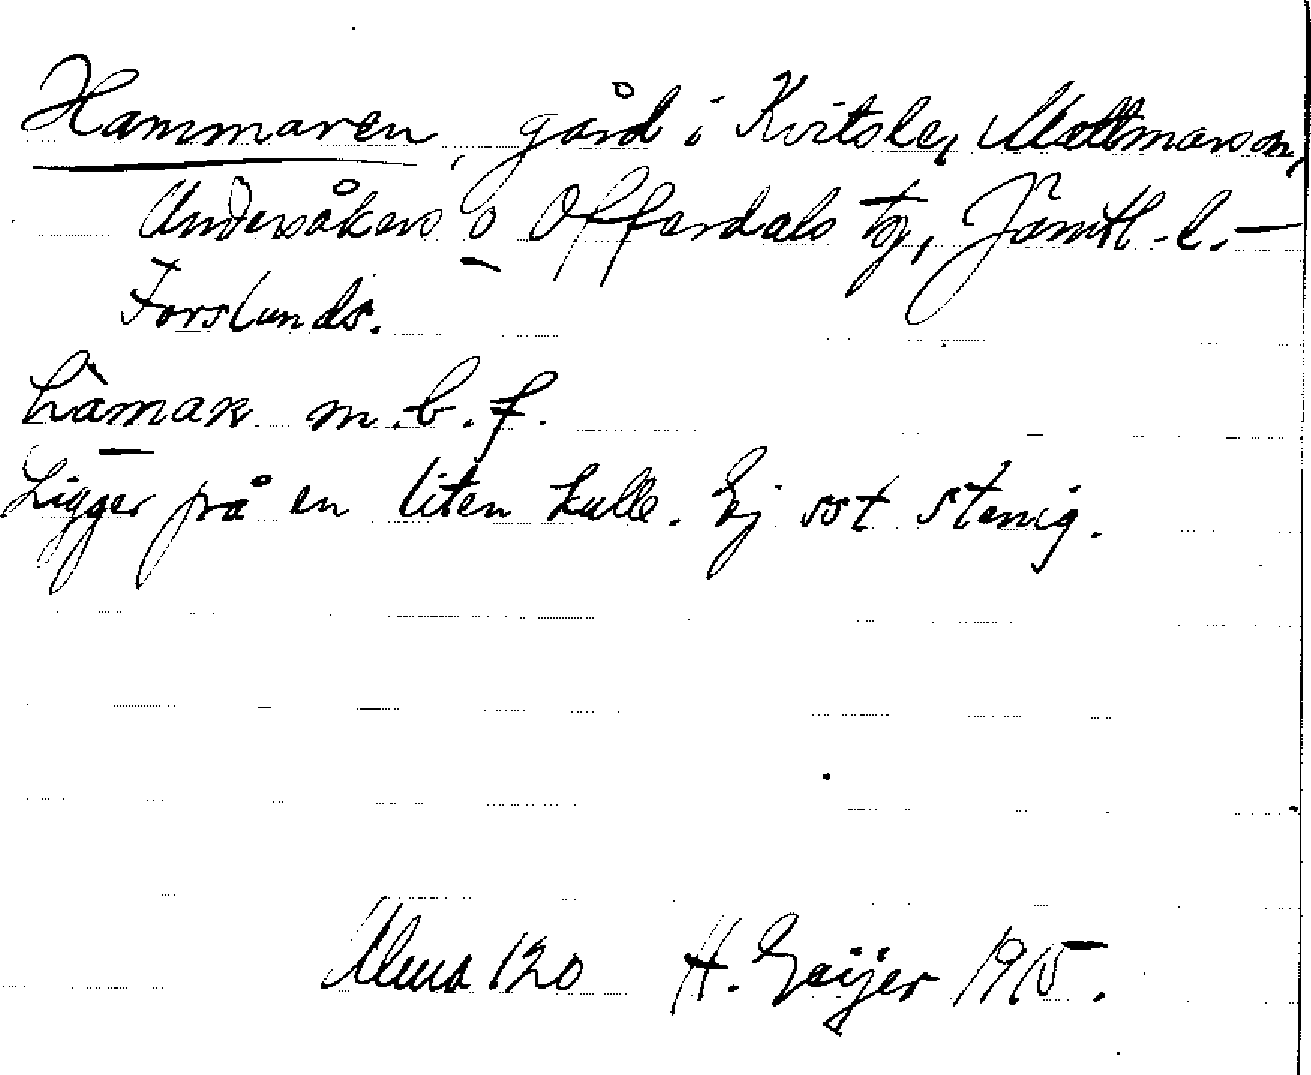 Hammaren, gård i Kvitsle, Mattmarson,
Undersåkers o Offerdals tg, Jämtl. l. —
Forslunds.
m. b. f.
Ligger på en liten kulle. Ej sst stenig.
120 H. Geijer 1915.